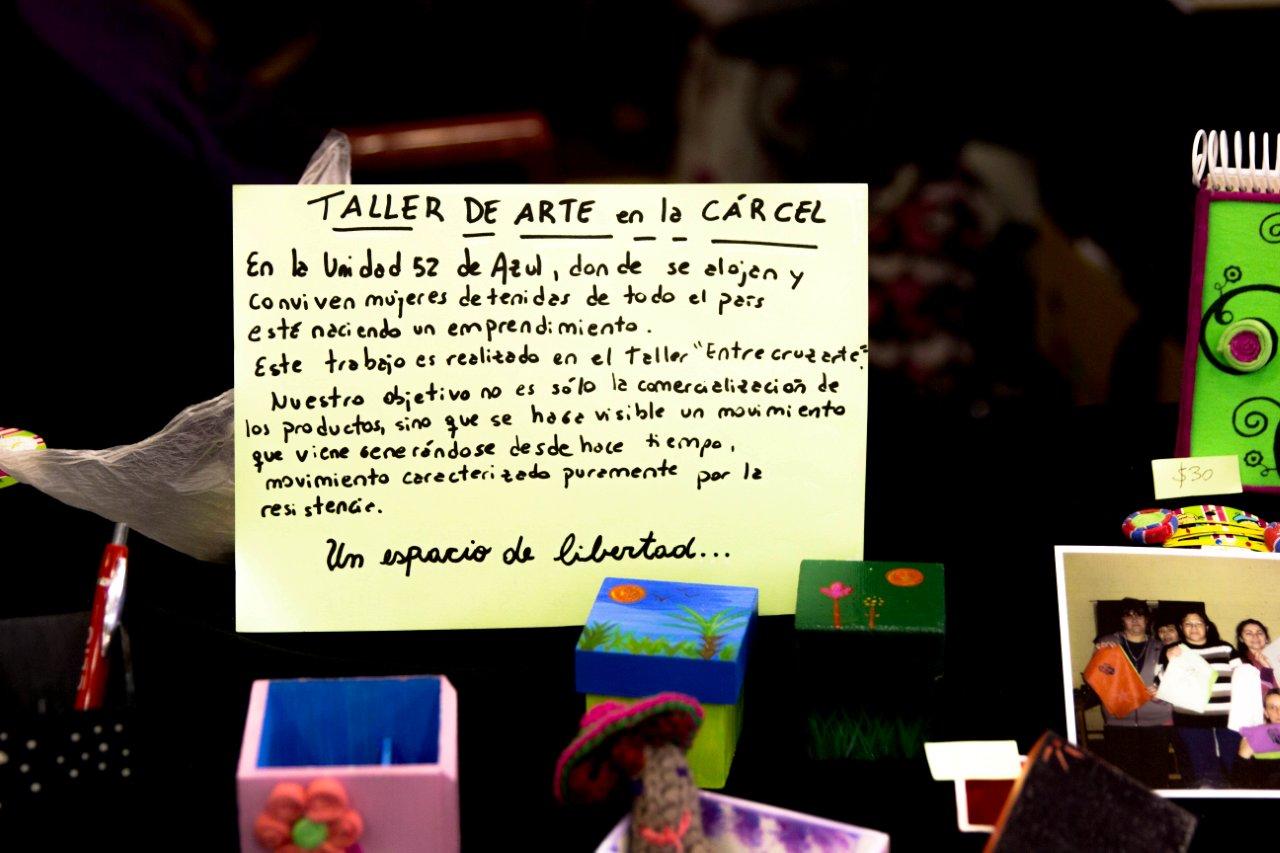 TALLER DE ARTE en la CÁRCEL
En la Unidad 52 de Azul, donde se alojan y
conviven mujeres detenidas de todo el país
esté naciendo un emprendimiento.
Este trabajo es realizado en el Taller "Entrecruzarte".
Nuestro objetivo no es sólo la comercialización de
los productos, sino que se hace visible un movimiento
que viene generándose desde hace tiempo,
movimiento caracterizado puramente por la
resistencia.
Un espacio de libertad...
$30